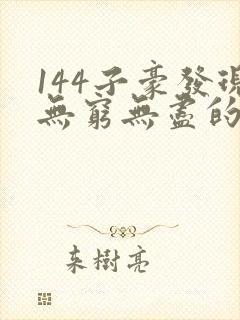 144子豪發現
無窮無盡的
朱樹亮